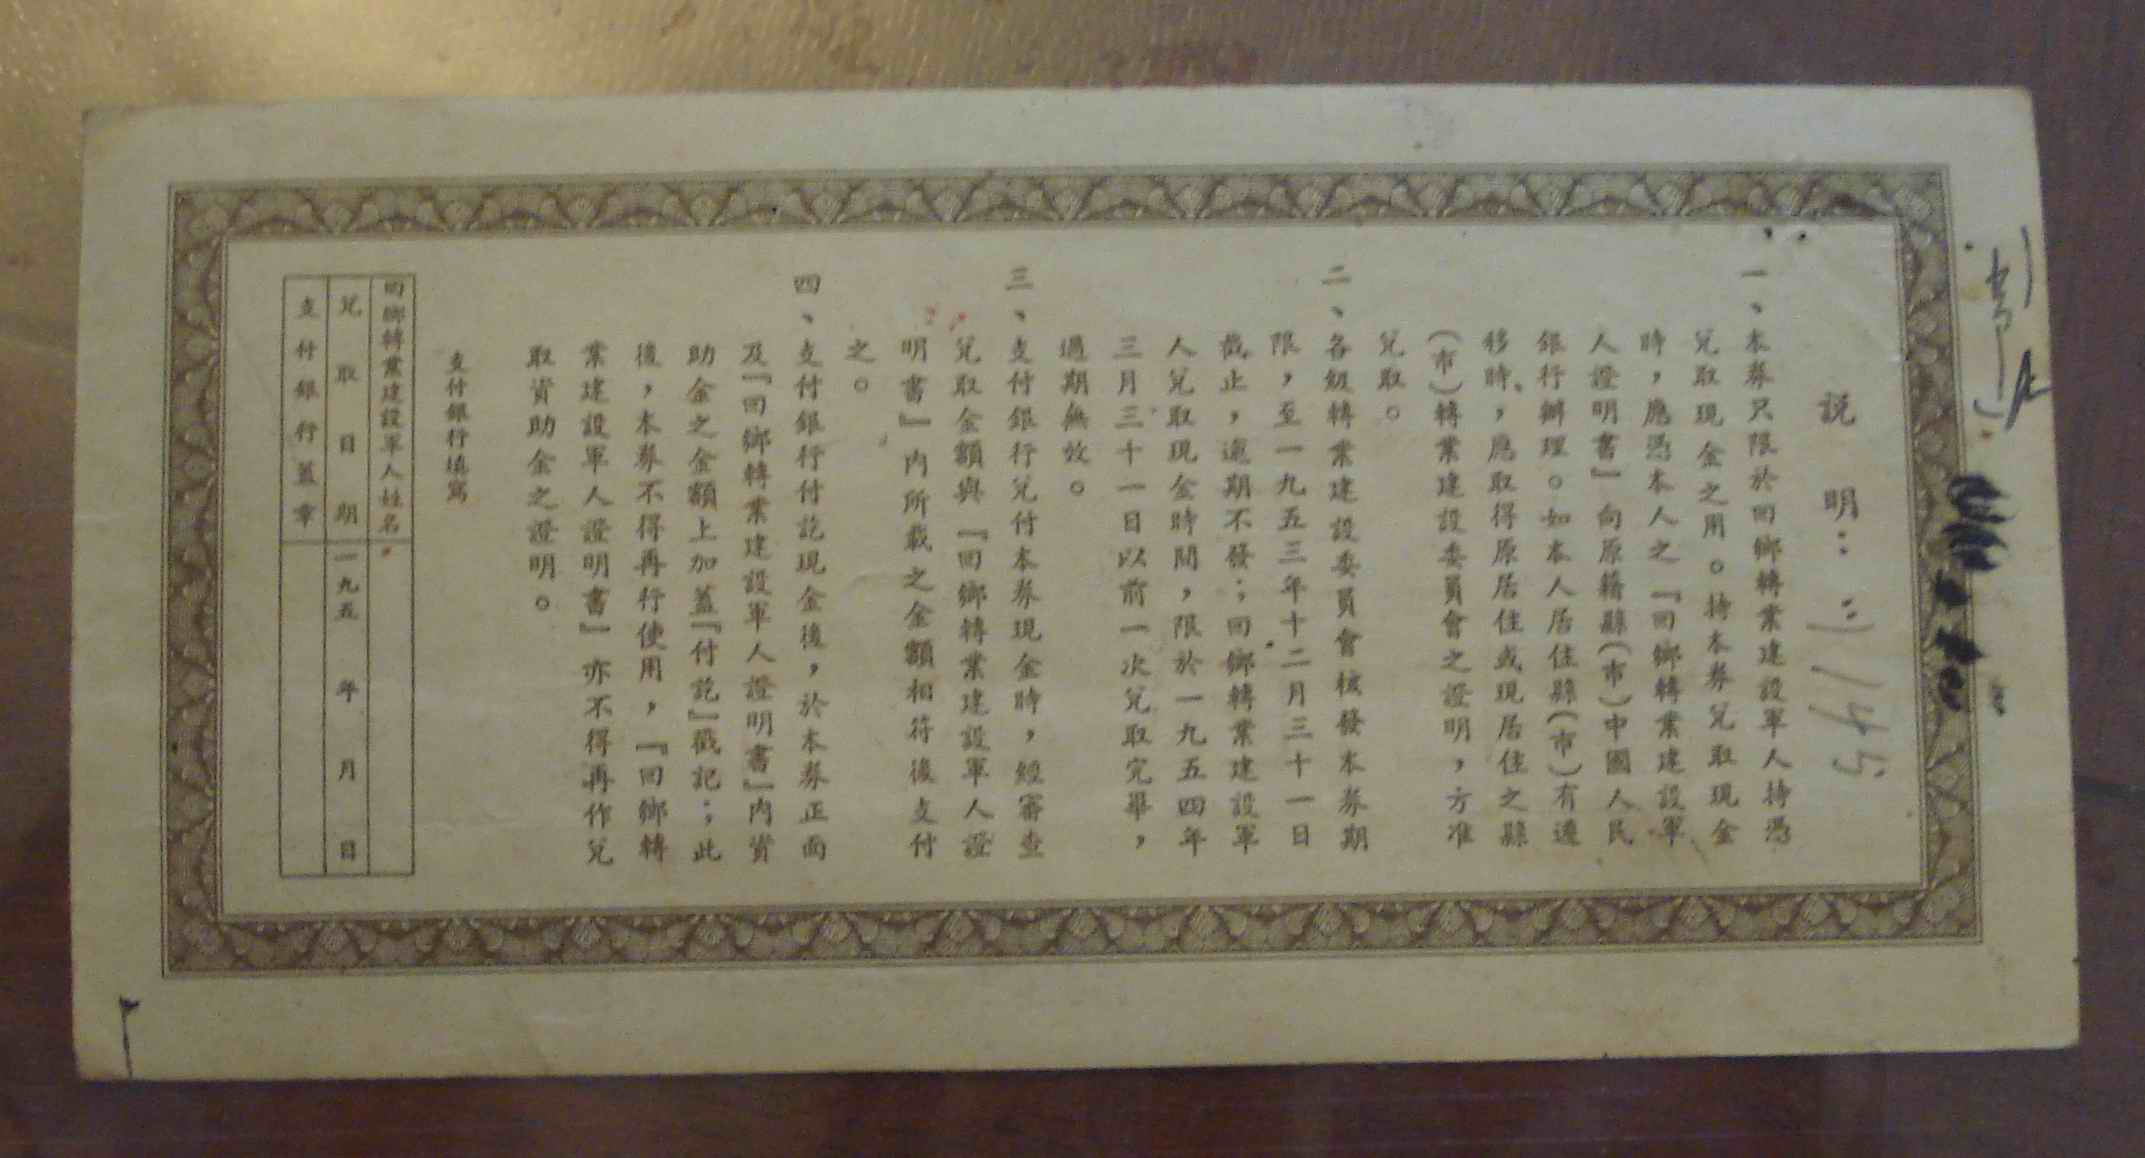 説明：
1145
一、本券只限於回鄉轉業建設軍人持憑
兌取現金之用。持本券兌取現金
時，應憑本人之『回鄉轉業建設軍
人證明書』向原籍縣(市)中國人民
銀行辦理。如本人居住縣(市)有遷
移時，應取得原居住或現居住之縣
(市)轉業建設委員會之證明，方准
兌取。
二、各級轉業建設委員會核發本券期
限，至一九五三年十二月三十一日
截止，逾期不發；回鄉轉業建設軍
人兌取現金時間，限於一九五四年
三月三十一日以前一次兌取完畢，
過期無效。
三、支付銀行兌付本券現金時，經審查
兌取金額與『回鄉轉業建設軍人證
明書』內所載之金額相符後支付
之。
四、支付銀行付訖現金後，於本券正面
及『回鄉轉業建設軍人證明書』內資
助金之金額上加蓋『付訖』戳記；此
後，本券不得再行使用，『回鄉轉
業建設軍人證明書』亦不得再作兌
取資助金之證明。
支付銀行填寫
回鄉轉業建設軍人姓名
兌取日期 一九五 年 月 日
支付銀行蓋章